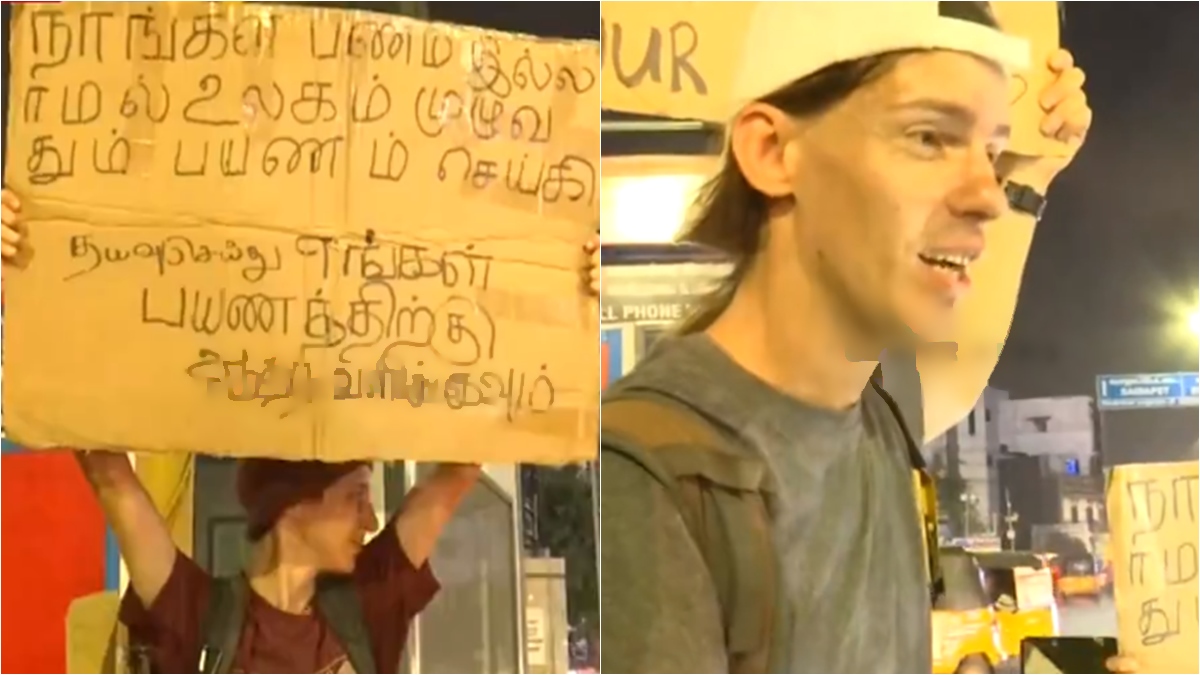 நாங்கள் பணம் இல்ல
ாமல் உலகம் முழுவ
தும் பயணம் செய்கி
தயவுசெய்து எங்கள்
பயணத்திற்கு
OUR
LL PHONE
SAIDAPET
நா
ாம
து